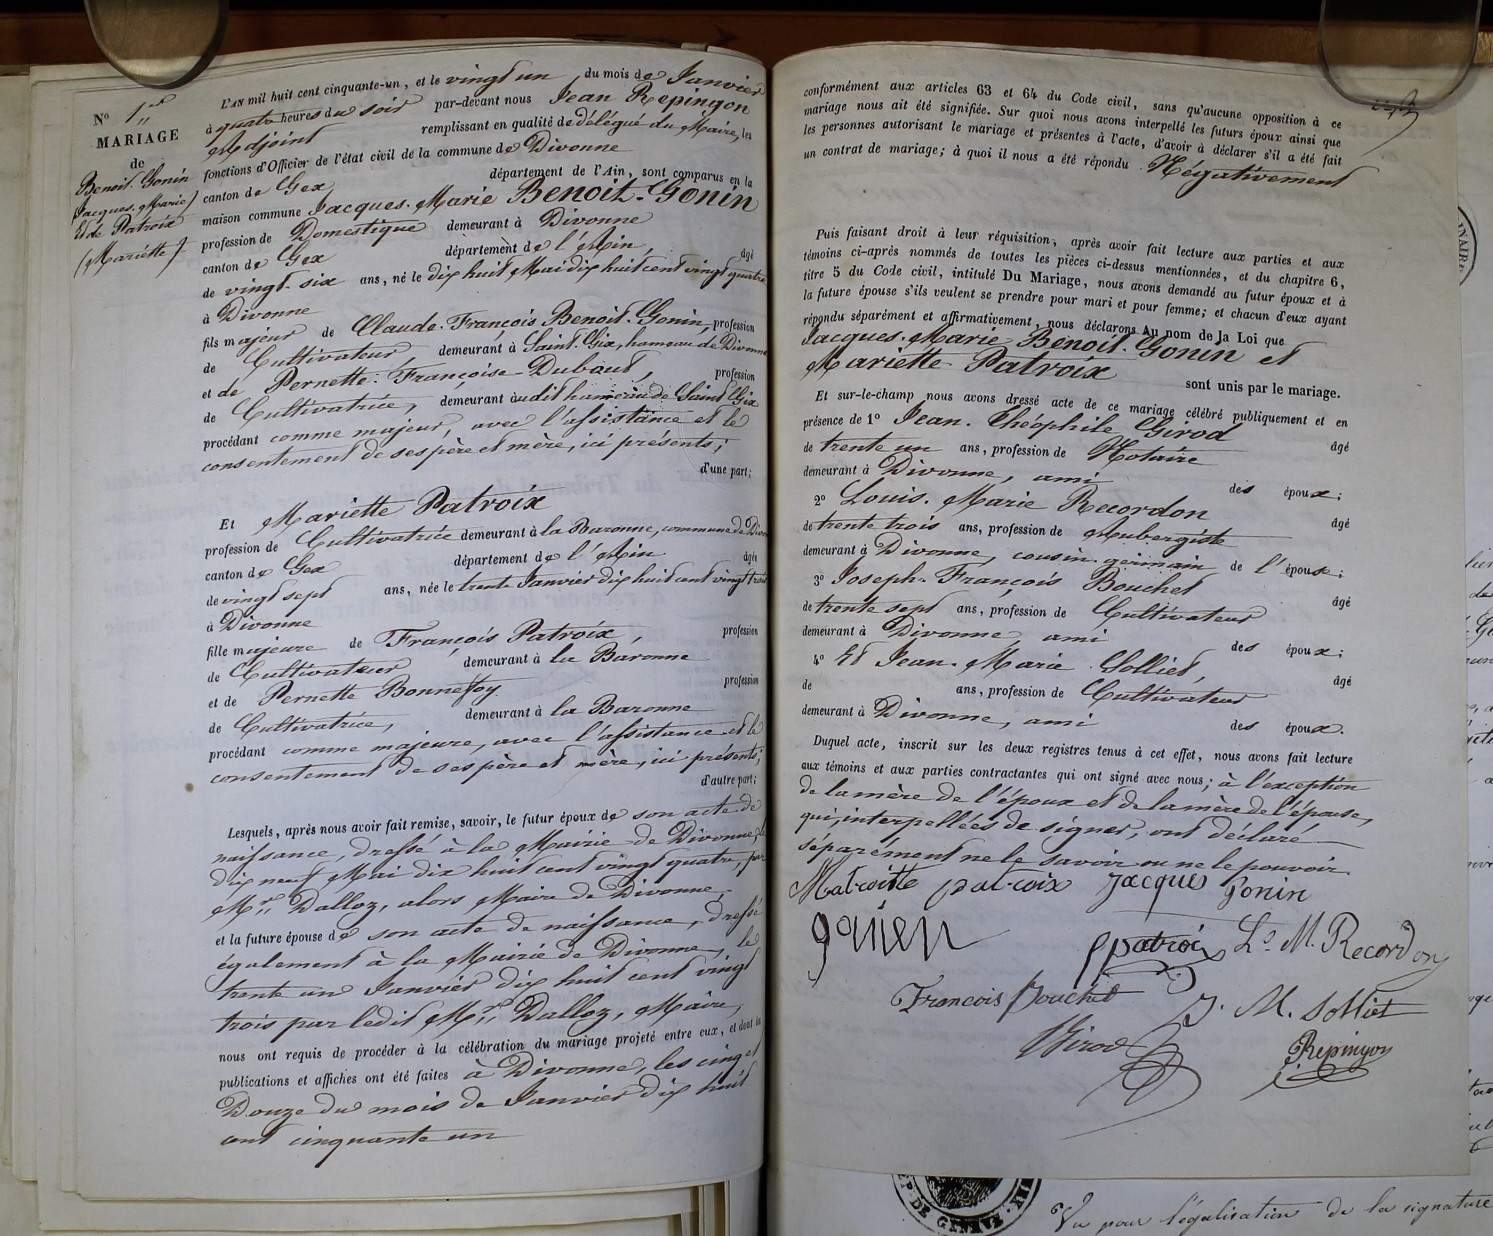 N° 1er
MARIAGE
de
Benoit-Gonin
(Jacques-Marie)
Et de Patroix
(Mariette)
L'AN mil huit cent cinquante-un, et le vingt un du mois de Janvier
à quatre heures du soir par-devant nous Jean Repingon
Adjoint remplissant en qualité de délégué du Maire, les
fonctions d'Officier de l'état civil de la commune de Divonne
canton de Gex département de l'Ain, sont comparus en la
maison commune Jacques-Marie Benoit-Gonin
profession de Domestique demeurant à Divonne
canton de Gex département de l'Ain, âgé
de vingt-six ans, né le dix huit Mai dix huit cent vingt quatre
à Divonne
fils majeur de Claude-François Benoit-Gonin, profession
de Cultivateur, demeurant à Saint-Gix, hameau de Divonne
et de Pernette-Françoise Dubout, profession
de Cultivatrice, demeurant audit hameau de Saint Gix
procédant comme majeur, avec l'assistance et le
consentement de ses père et mère, ici présents;
d'une part;
Et Mariette Patroix
profession de Cultivatrice demeurant à la Baronne, commune de
canton de Gex département de l'Ain âgée
de vingt sept ans, née le trente Janvier dix huit cent vingt trois
à Divonne
fille majeure de François Patroix, profession
de Cultivateur demeurant à la Baronne
et de Pernette Bonnefoy profession
de Cultivatrice, demeurant à la Baronne
procédant comme majeure, avec l'assistance et le
consentement de ses père et mère, ici présents;
d'autre part;
Lesquels, après nous avoir fait remise, savoir, le futur époux de son acte de
naissance, dressé à la Mairie de Divonne, le
dix neuf Mai dix huit cent vingt quatre, par
Mr. Dalloz, alors Maire de Divonne,
et la future épouse de son acte de naissance, dressé
également à la Mairie de Divonne, le
trente un Janvier dix huit cent vingt
trois par ledit Mr. Dalloz, Maire,
nous ont requis de procéder à la célébration du mariage projeté entre eux, et dont les
publications et affiches ont été faites à Divonne, les cinq et
Douze du mois de Janvier dix huit
cent cinquante un
conformément aux articles 63 et 64 du Code civil, sans qu'aucune opposition à ce
mariage nous ait été signifiée. Sur quoi nous avons interpellé les futurs époux ainsi que
les personnes autorisant le mariage et présentes à l'acte, d'avoir à déclarer s'il a été fait
un contrat de mariage; à quoi il nous a été répondu Négativement
Puis faisant droit à leur réquisition, après avoir fait lecture aux parties et aux
témoins ci-après nommés de toutes les pièces ci-dessus mentionnées, et du chapitre 6,
titre 5 du Code civil, intitulé Du Mariage, nous avons demandé au futur époux et à
la future épouse s'ils veulent se prendre pour mari et pour femme; et chacun d'eux ayant
répondu séparément et affirmativement, nous déclarons Au nom de la Loi que
Jacques-Marie Benoit-Gonin et
Mariette Patroix sont unis par le mariage.
Et sur-le-champ nous avons dressé acte de ce mariage célébré publiquement et en
présence de 1° Jean-Théophile Girod âgé
de trente un ans, profession de Notaire
demeurant à Divonne, ami des époux;
2° Louis-Marie Recordon âgé
de trente trois ans, profession de Aubergiste
demeurant à Divonne, cousin germain de l'épouse;
3° Joseph-François Bouchet âgé
de trente sept ans, profession de Cultivateur
demeurant à Divonne ami des époux;
4° Et Jean-Marie Solliet, âgé
de ans, profession de Cultivateur
demeurant à Divonne, ami des époux.
Duquel acte, inscrit sur les deux registres tenus à cet effet, nous avons fait lecture
aux témoins et aux parties contractantes qui ont signé avec nous; à l'exception
de la mère de l'époux et de la mère de l'épouse,
qui, interpellées de signer, ont déclaré
séparément ne le savoir ou ne le pouvoir.
patroix Jacques Gonin
gonien
patroix Ls. M. Recordon
François Bouchet J. M. Solliet
Girod Repingon
DE GENÈVE
Vu pour légalisation de la signature